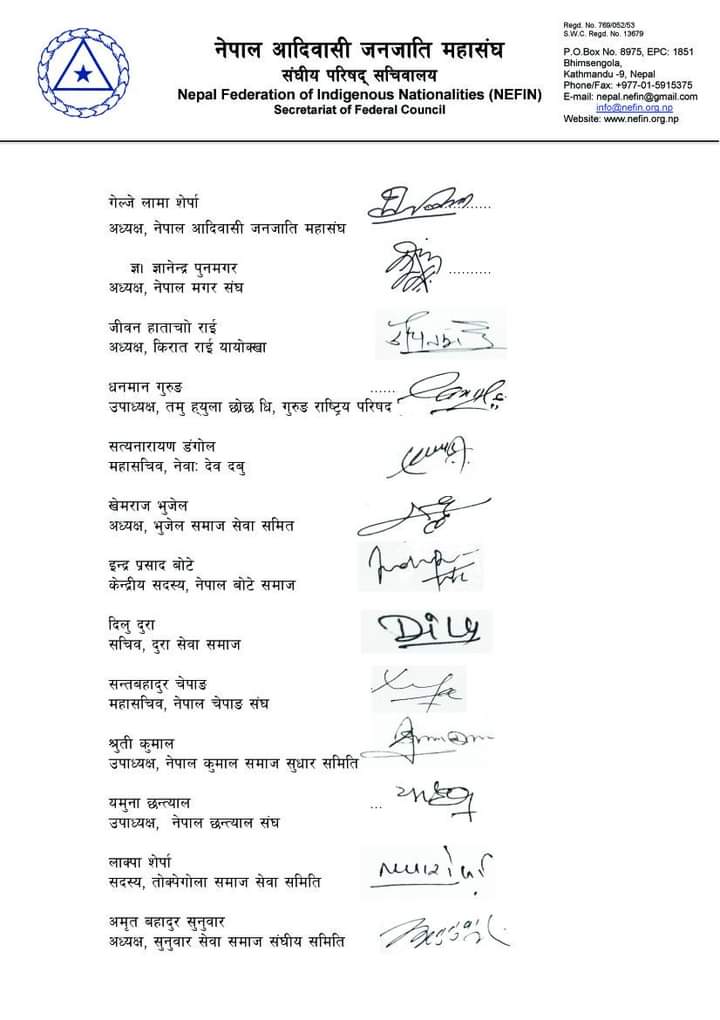 नेपाल आदिवासी जनजाति महासंघ
संघीय परिषद् सचिवालय
Nepal Federation of Indigenous Nationalities (NEFIN)
Secretariat of Federal Council
Regd. No. 769/052/53
S.W.C. Regd. No. 13679
P.O.Box No. 8975, EPC: 1851
Bhimsengola,
Kathmandu -9, Nepal
Phone/Fax: +977-01-5915375
E-mail: nepal.nefin@gmail.com
info@nefin.org.np
Website: www.nefin.org.np
गेल्जे लामा शेर्पा
अध्यक्ष, नेपाल आदिवासी जनजाति महासंघ
ज्ञा ज्ञानेन्द्र पुनमगर
अध्यक्ष, नेपाल मगर संघ
जीवन हाताचाो राई
अध्यक्ष, किरात राई यायोक्खा
धनमान गुरुङ
उपाध्यक्ष, तमु ह्युला छोंछ धिं, गुरुङ राष्ट्रिय परिषद
सत्यनारायण डंगोल
महासचिव, नेवा: देव दबु
खेमराज भुजेल
अध्यक्ष, भुजेल समाज सेवा समित
इन्द्र प्रसाद बोटे
केन्द्रीय सदस्य, नेपाल बोटे समाज
दिलु दुरा
सचिव, दुरा सेवा समाज
DiLy
सन्तबहादुर चेपाङ
महासचिव, नेपाल चेपाङ संघ
श्रुती कुमाल
उपाध्यक्ष, नेपाल कुमाल समाज सुधार समिति
यमुना छन्त्याल
उपाध्यक्ष, नेपाल छन्त्याल संघ
लाक्पा शेर्पा
सदस्य, तोक्पेगोला समाज सेवा समिति
अमृत बहादुर सुनुवार
अध्यक्ष, सुनुवार सेवा समाज संघीय समिति